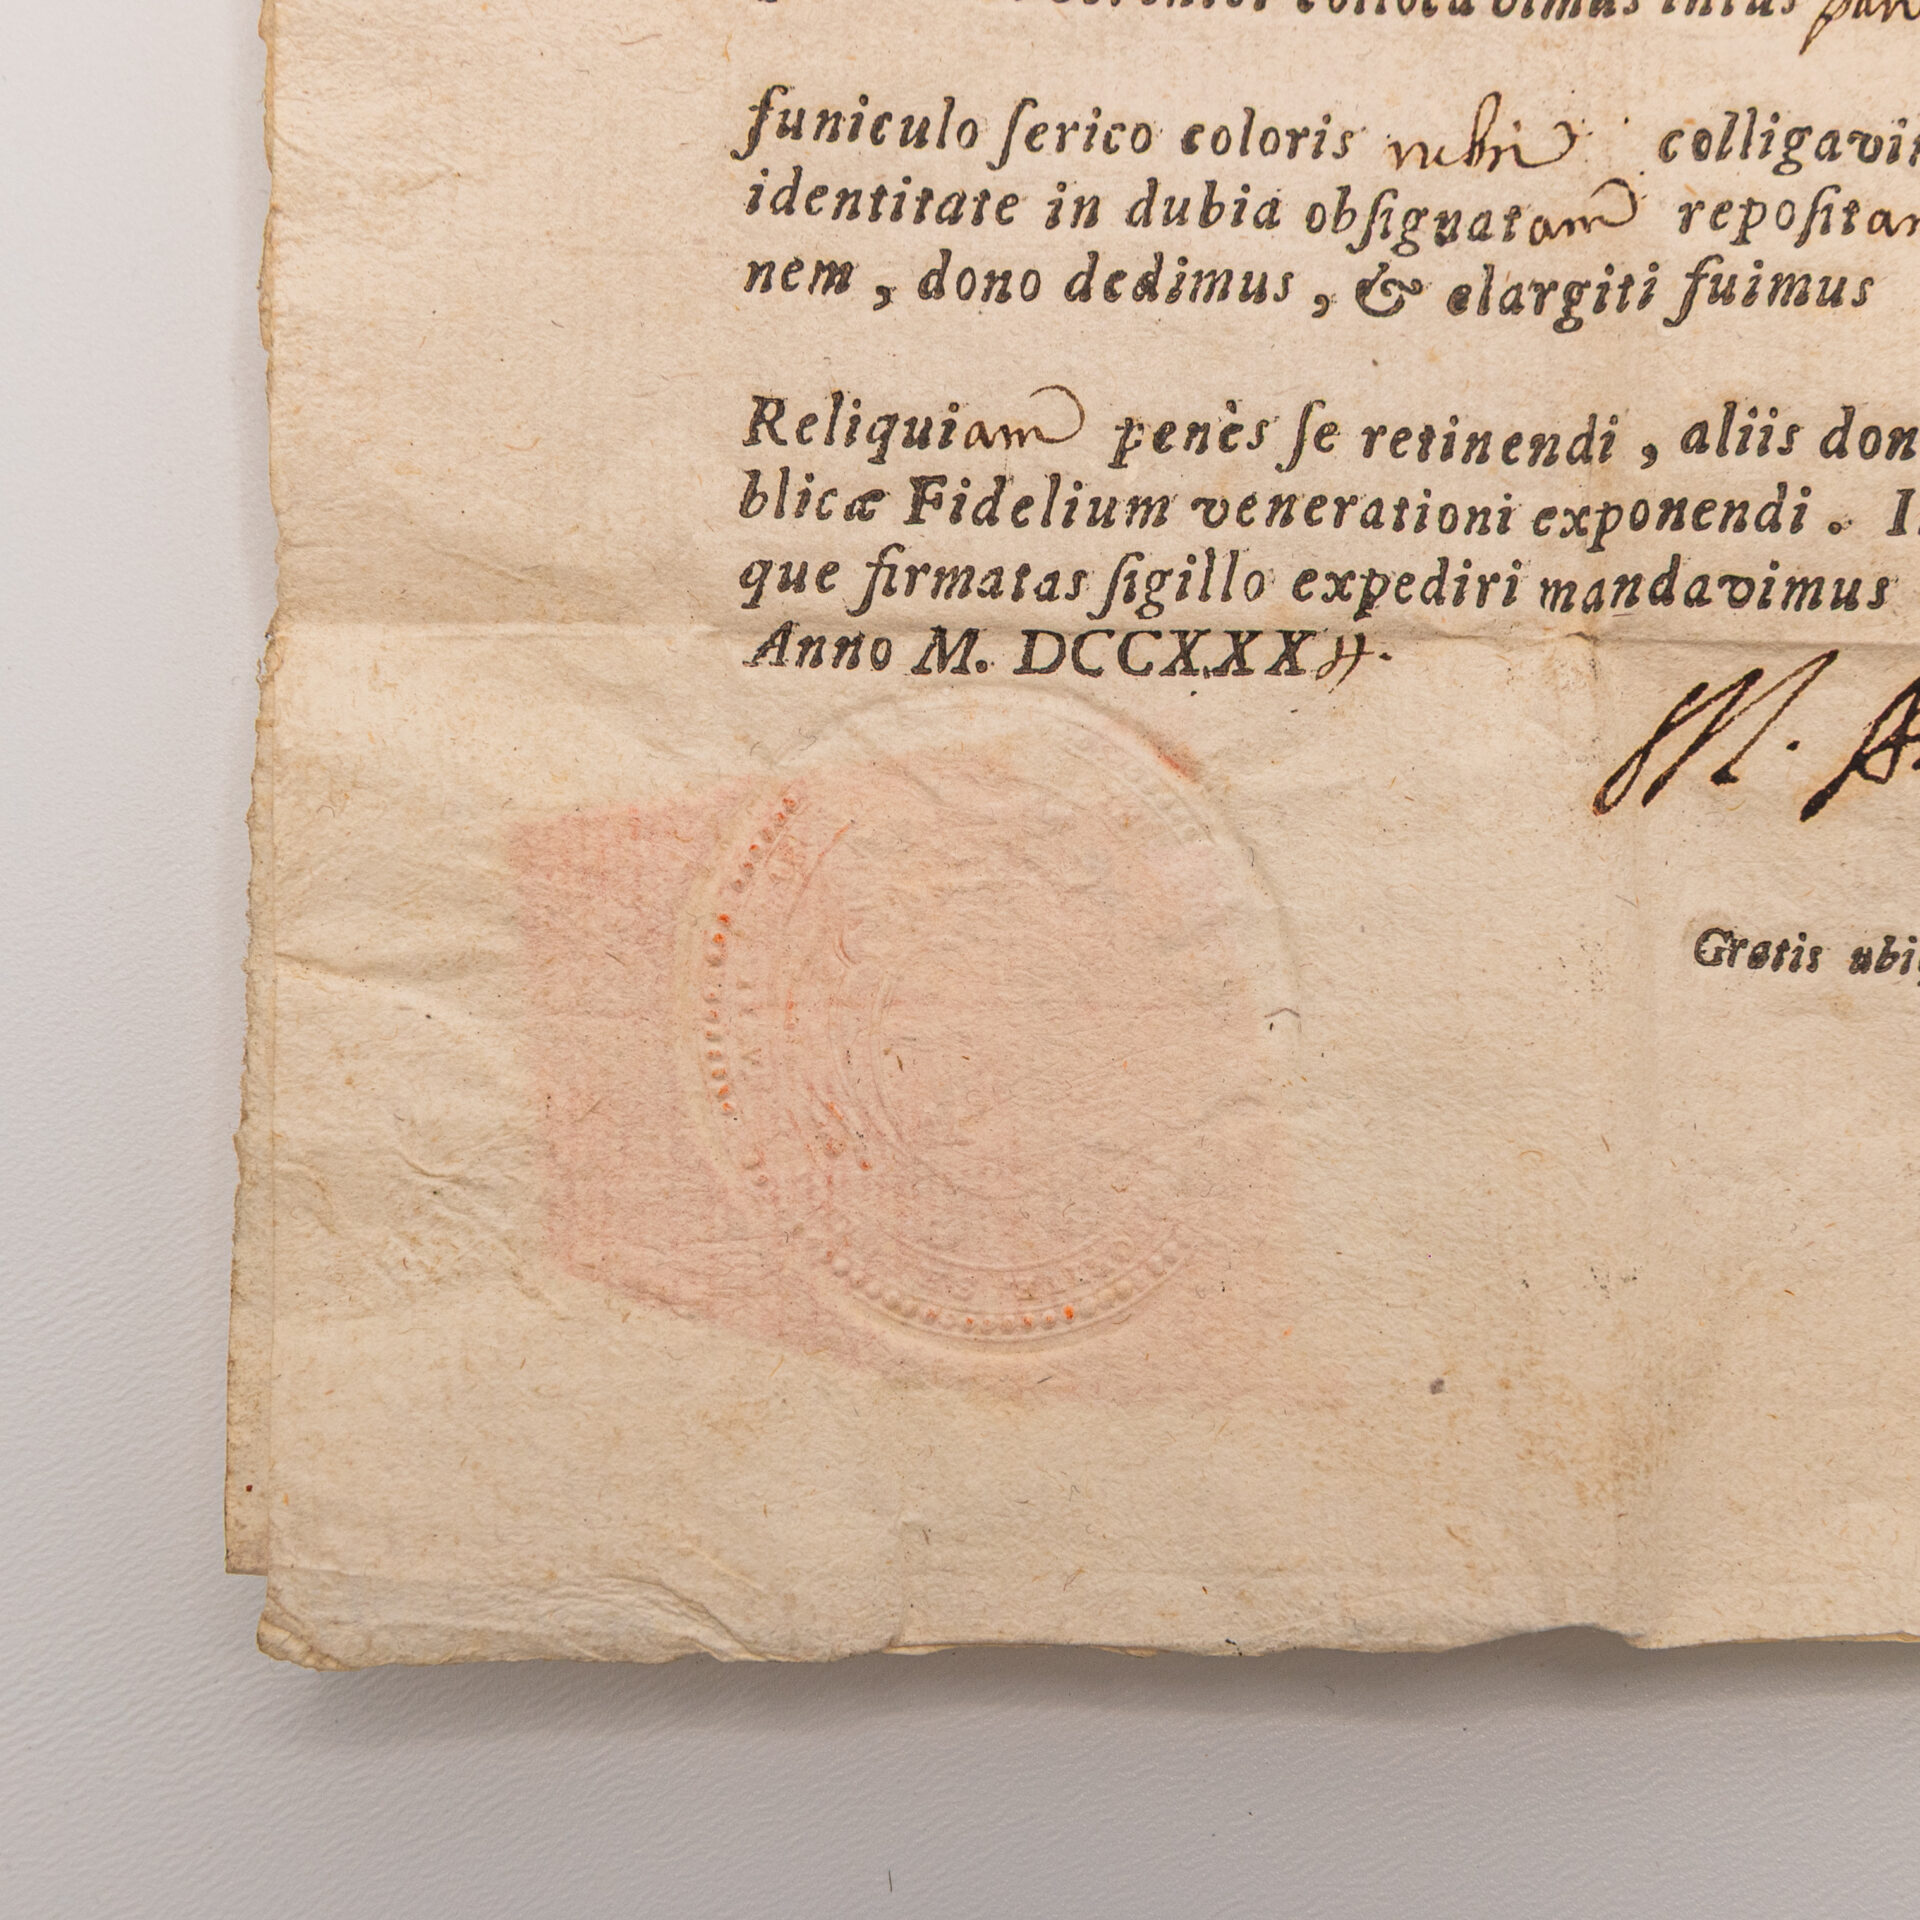 collocavimus intus par
funiculo ſerico coloris rubri colligavim
identitate in dubia obſignatam repoſitam
nem, dono dedimus, & elargiti fuimus
Reliquiam penès ſe retinendi, aliis don
blicæ Fidelium venerationi exponendi. I
que firmatas ſigillo expediri mandavimus
Anno M. DCCXXXII.
M. A
Gratis ubi